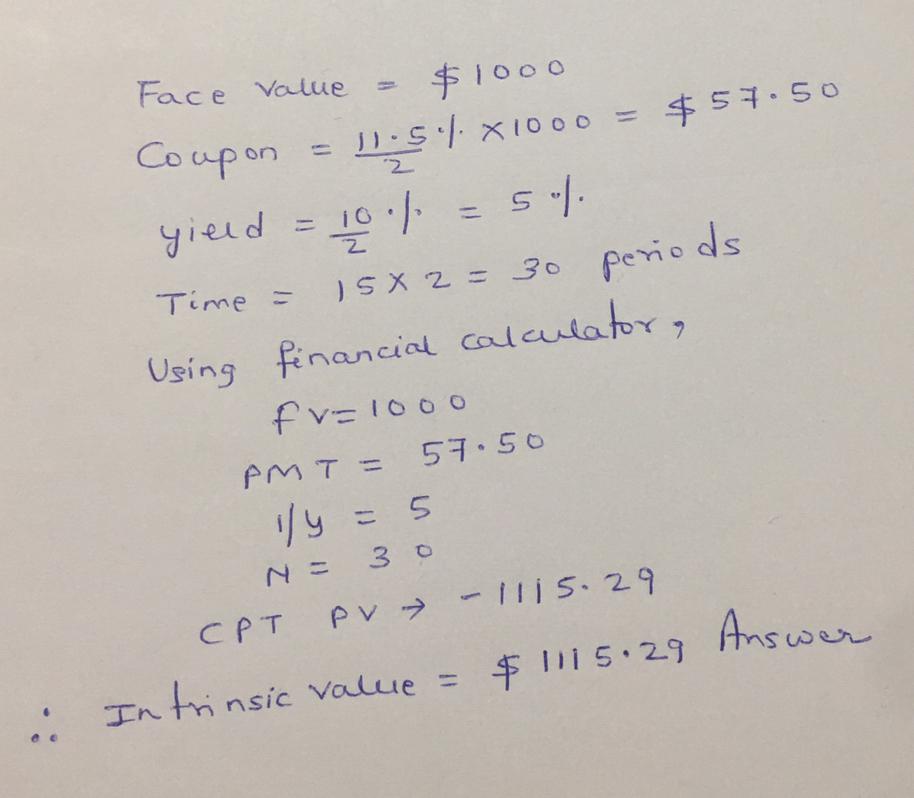 Face Value = $1000
Coupon = 11.5%/2 ×1000 = $57.50
yield = 10/2 % = 5%
Time = 15×2 = 30 periods
Using financial calculator,
fv=1000
PMT = 57.50
I/y = 5
N = 30
CPT PV → -1115.29
∴ Intrinsic value = $1115.29 Answer